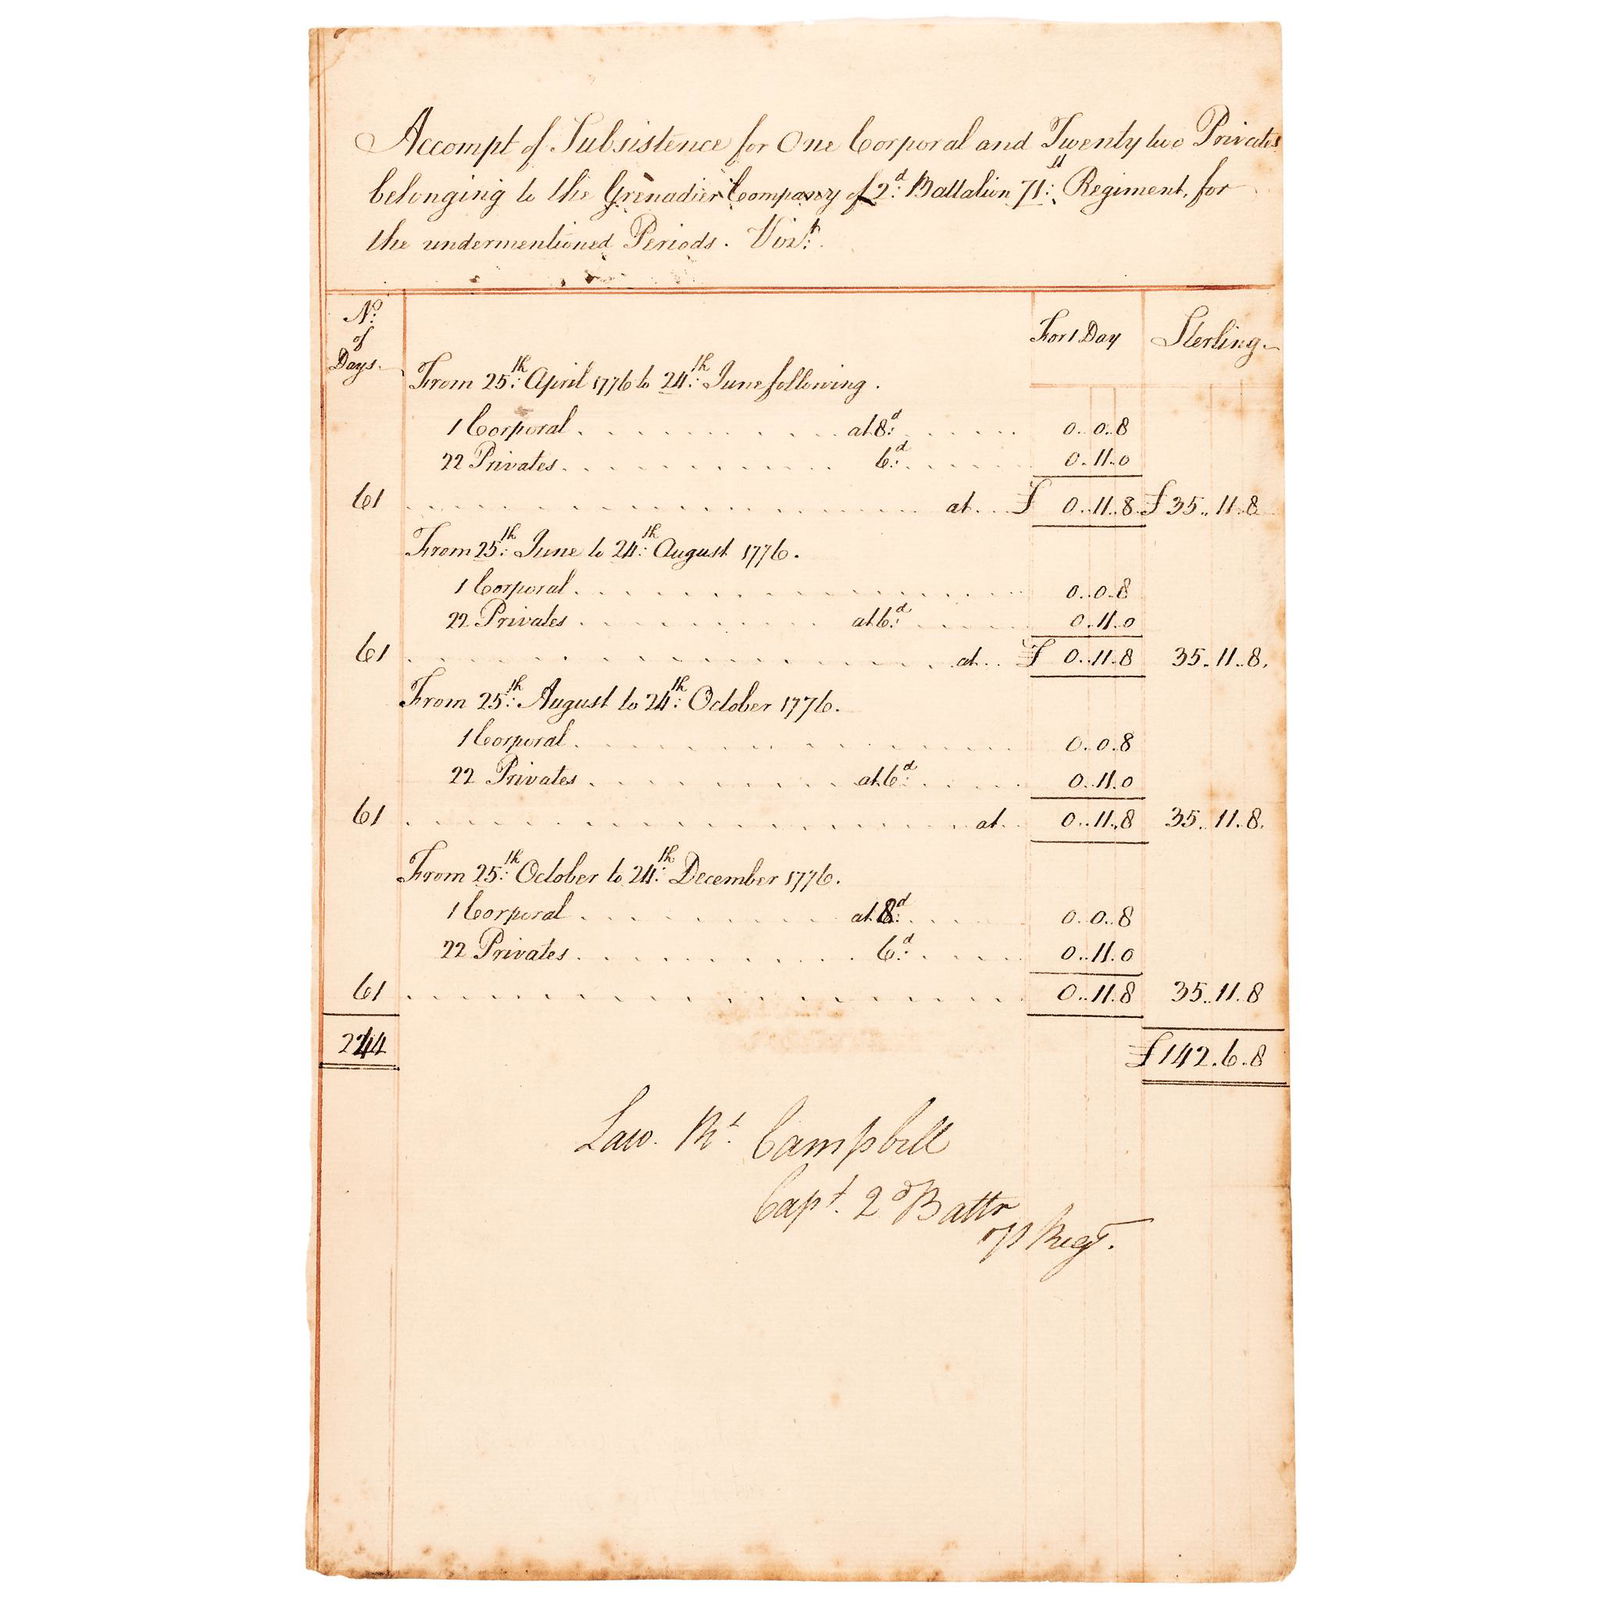 Accompt of Subsistence for One Corporal and Twenty two Privates
belonging to the Grenadier Company of 2d: Battalion 71st: Regiment, for
the undermentioned Periods. Vizt:
No: of Days. For 1 Day Sterling
From 25th: April 1776 to 24th: June following.
1 Corporal at 8d: 0..0..8
22 Privates 6d: 0..11..0
61 at £ 0..11..8 £35..11..8
From 25th: June to 24th: August 1776.
1 Corporal 0..0..8
22 Privates at 6d: 0..11..0
61 at £ 0..11..8 35..11..8.
From 25th: August to 24th: October 1776.
1 Corporal 0..0..8
22 Privates at 6d: 0..11..0
61 at 0..11..8 35..11..8.
From 25th: October to 24th: December 1776.
1 Corporal at 8d: 0..0..8
22 Privates 6d: 0..11..0
61 0..11..8 35..11..8
244 £142..6..8
Law. Rt. Campbell
Capt. 2d Battn
71 Regt.